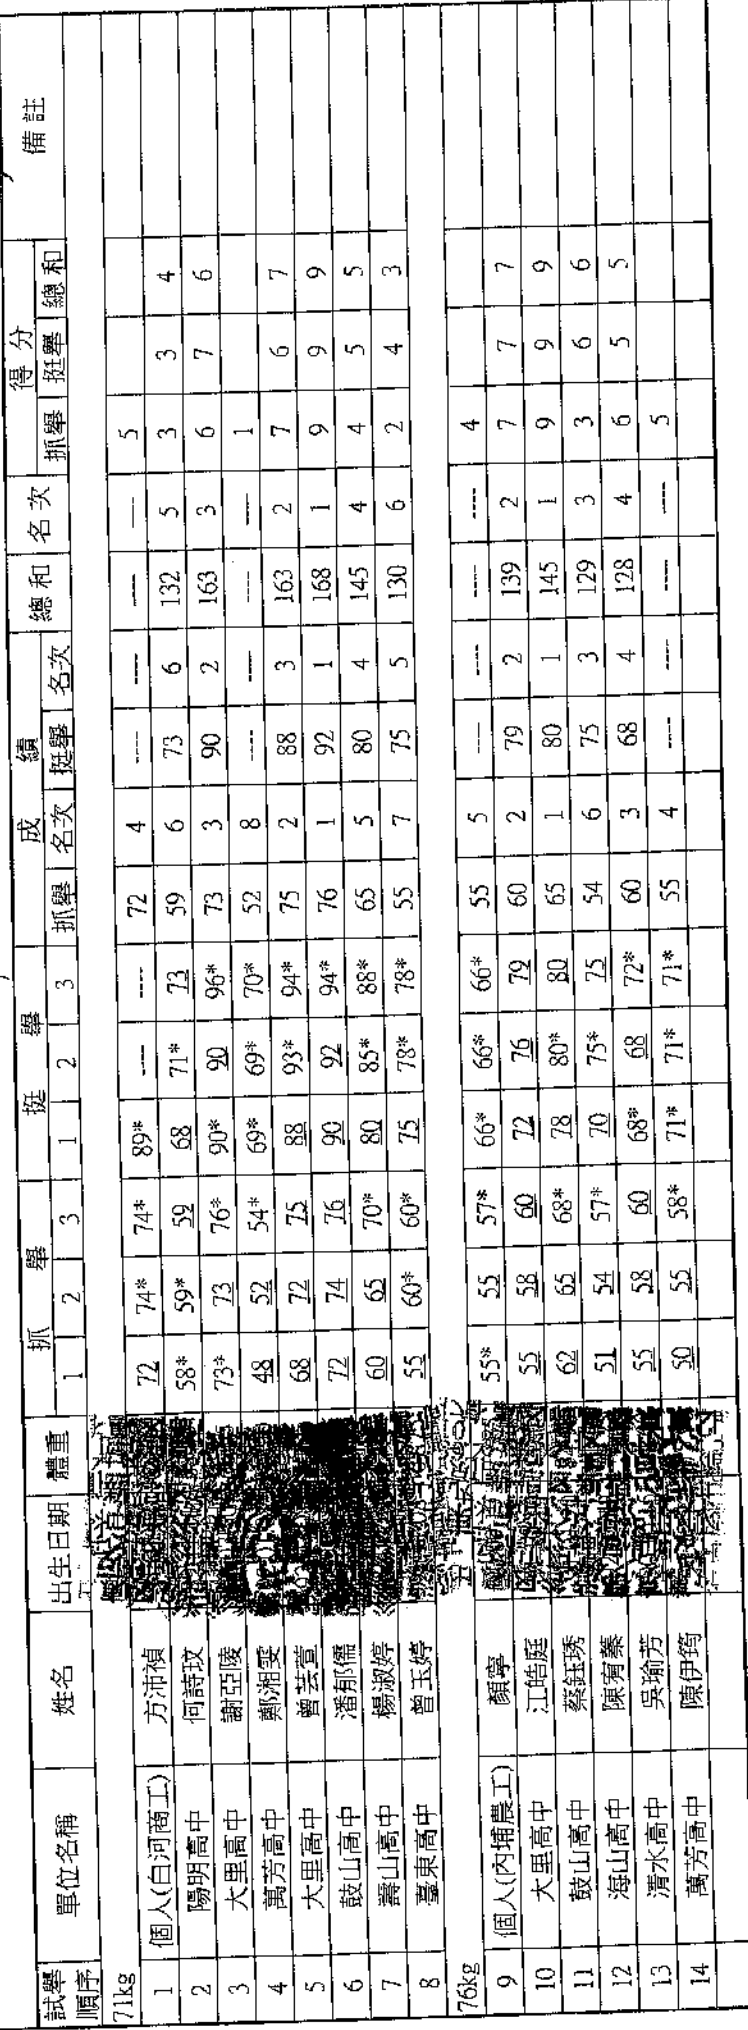 試舉順序 單位名稱 姓名 出生日期 體重 抓舉 挺舉 成績 得分 備註
1 2 3 1 2 3 抓舉 名次 挺舉 名次 總和 名次 抓舉 挺舉 總和
71kg
1 個人(白河商工) 方沛禎 72 74* 74* 89* ---- ---- 72 4 ---- ---- ---- ---- 5
2 陽明高中 何詩玟 58* 59* 59 68 71* 73 59 6 73 6 132 5 3 3 4
3 大里高中 謝亞陵 73* 73 76* 90* 90 96* 73 3 90 2 163 3 6 7 6
4 萬芳高中 鄭湘雯 48 52 54* 69* 69* 70* 52 8 ---- ---- ---- ---- 1
5 大里高中 曾芸萱 68 72 75 88 93* 94* 75 2 88 3 163 2 7 6 7
6 鼓山高中 潘郁儒 72 74 76 90 92 94* 76 1 92 1 168 1 9 9 9
7 壽山高中 楊淑婷 60 65 70* 80 85* 88* 65 5 80 4 145 4 4 5 5
8 臺東高中 曾玉婷 55 60* 60* 75 78* 78* 55 7 75 5 130 6 2 4 3
76kg
9 個人(內埔農工) 顏寧 55* 55 57* 66* 66* 66* 55 5 ---- ---- ---- ---- 4
10 大里高中 江皓庭 55 58 60 72 76 79 60 2 79 2 139 2 7 7 7
11 鼓山高中 蔡鈺琇 62 65 68* 78 80* 80 65 1 80 1 145 1 9 9 9
12 海山高中 陳宥蓁 51 54 57* 70 75* 75 54 6 75 3 129 3 3 6 6
13 清水高中 吳瑜芳 55 58 60 68* 68 72* 60 3 68 4 128 4 6 5 5
14 萬芳高中 陳伊筠 50 55 58* 71* 71* 71* 55 4 ---- ---- ---- ---- 5